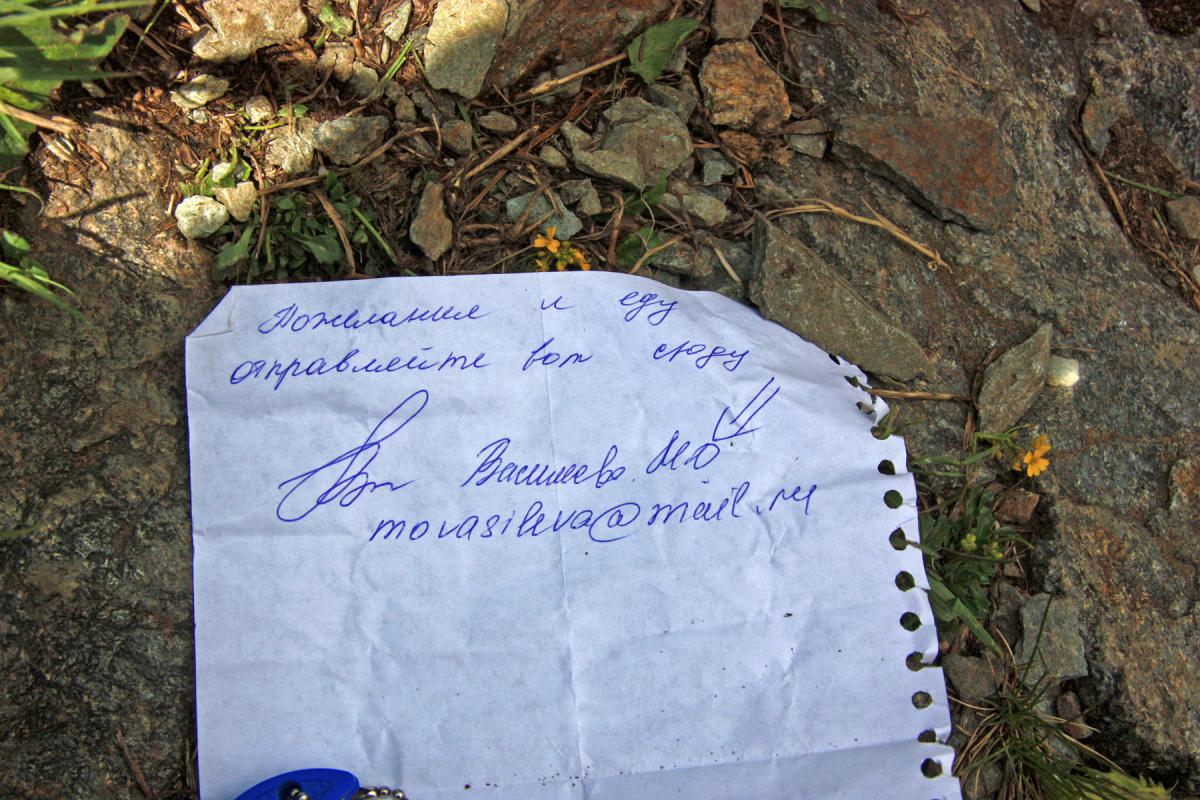 Пожелания и еду
отправляйте вот сюду
Васильева М.О
movasileva@mail.ru